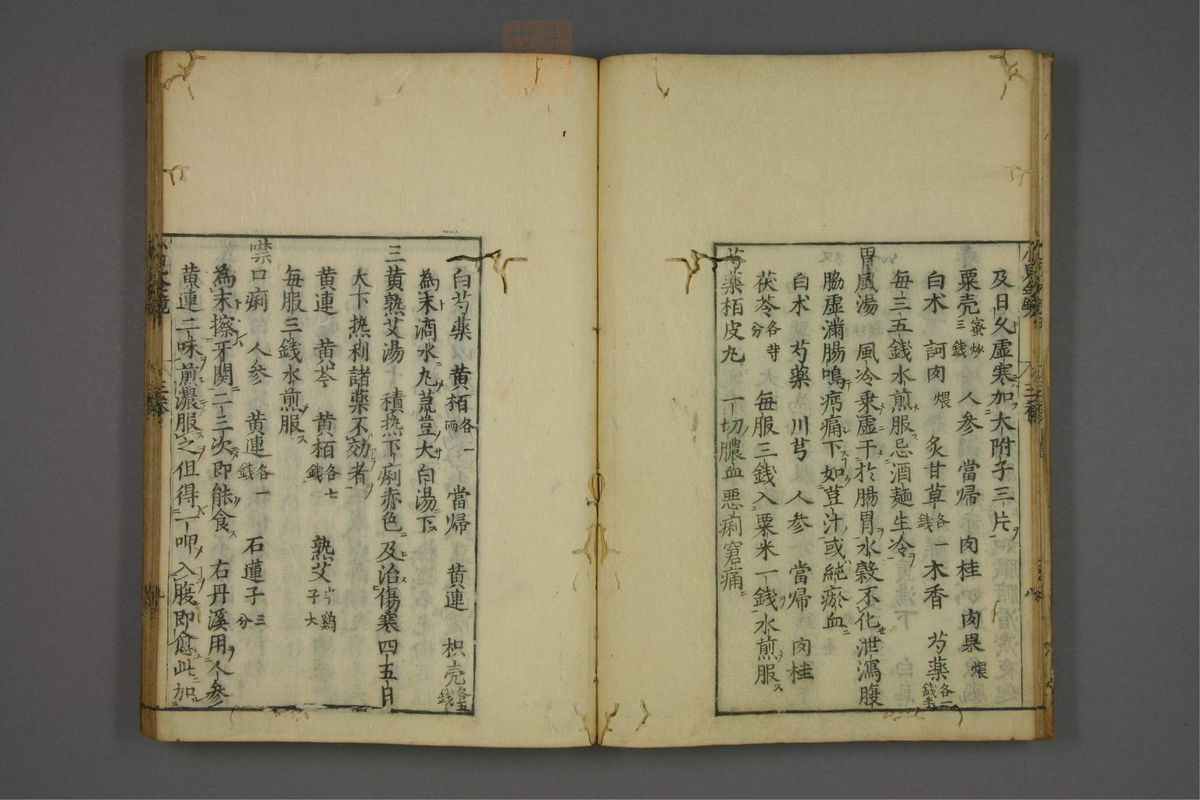 及日久虚寒加大附子三片
粟売蜜炒三銭 人参 當帰 肉桂 肉果煨
白朮 訶肉煨 炙甘草各一銭 木香 芍藥各二銭半
毎三五銭水煎服忌酒麺生冷
胃風湯 風冷乗虚干於腸胃水穀不化泄瀉腹
脇虚満腸鳴㽲痛下如荳汁或純瘀血
白朮 芍藥 川芎 人参 當帰 肉桂
茯苓各等分 毎服三銭入粟米一銭水煎服
芍藥栢皮丸 一切膿血悪痢窘痛
白芍藥 黄栢各一両 當帰 黄連 枳売各五銭
為末滴水丸荒荳大白湯下
三黄熟艾湯 積熱下痢赤色及治傷寒四五日
大下熱利諸藥不効者
黄連 黄芩 黄栢各七銭 熟艾半鷄子大
毎服三銭水煎服
噤口痢 人参 黄連各一銭 石蓮子三分
為末擦牙関二三次即能食 右丹溪用人参
黄連二味煎濃服之但得一呷入腹即愈此加